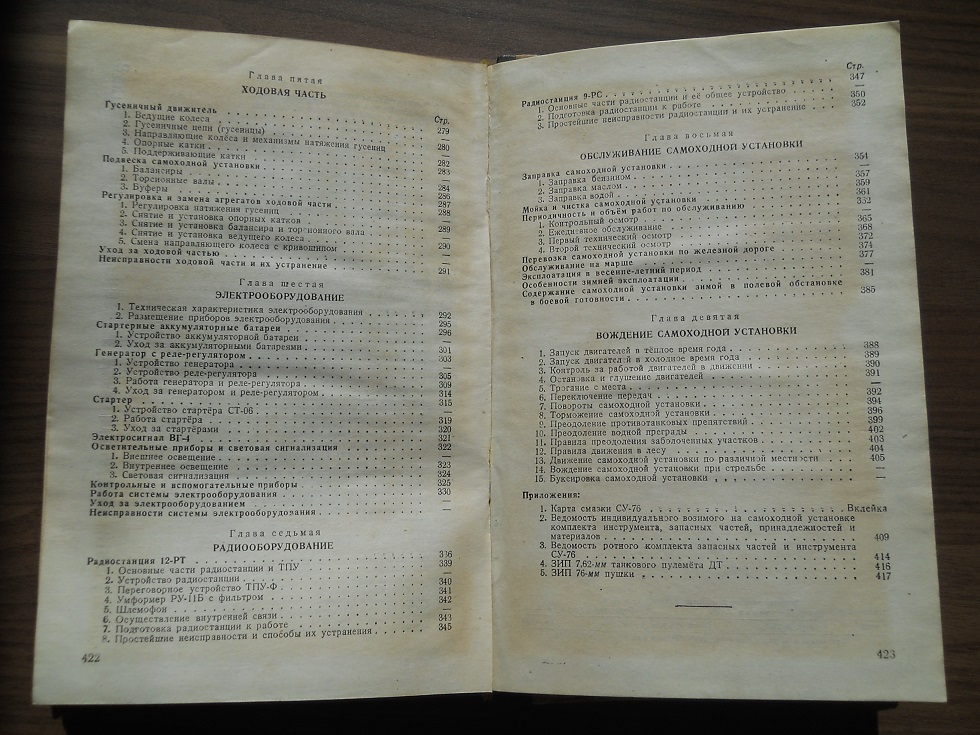 Глава пятая
ХОДОВАЯ ЧАСТЬ
Стр.
Гусеничный движитель
1. Ведущие колеса 279
2. Гусеничные цепи (гусеницы) —
3. Направляющие колёса и механизмы натяжения гусениц 280
4. Опорные катки —
5. Поддерживающие катки 282
Подвеска самоходной установки 283
1. Балансиры —
2. Торсионные валы 284
3. Буферы 286
Регулировка и замена агрегатов ходовой части 287
1. Регулировка натяжения гусениц 288
2. Снятие и установка опорных катков —
3. Снятие и установка балансира и торсионного вала 289
4. Снятие и установка ведущего колеса —
5. Смена направляющего колеса с кривошипом 290
Уход за ходовой частью —
Неисправности ходовой части и их устранение 291
Глава шестая
ЭЛЕКТРООБОРУДОВАНИЕ
1. Техническая характеристика электрооборудования 292
2. Размещение приборов электрооборудования 295
Стартерные аккумуляторные батареи 296
1. Устройство аккумуляторной батареи —
2. Уход за аккумуляторными батареями 301
Генератор с реле-регулятором 303
1. Устройство генератора —
2. Устройство реле-регулятора 305
3. Работа генератора и реле-регулятора 309
4. Уход за генератором и реле-регулятором 314
Стартер 315
1. Устройство стартёра СТ-06 —
2. Работа стартёра 319
3. Уход за стартёрами 320
Электросигнал ВГ-4 321
Осветительные приборы и световая сигнализация 322
1. Внешнее освещение —
2. Внутреннее освещение 323
3. Световая сигнализация 324
Контрольные и вспомогательные приборы 325
Работа системы электрооборудования 330
Уход за электрооборудованием —
Неисправности системы электрооборудования —
Глава седьмая
РАДИООБОРУДОВАНИЕ
Радиостанция 12-РТ 336
1. Основные части радиостанции и ТПУ 339
2. Устройство радиостанции —
3. Переговорное устройство ТПУ-Ф 340
4. Умформер РУ-11Б с фильтром 341
5. Шлемофон 342
6. Осуществление внутренней связи —
7. Подготовка радиостанции к работе 343
8. Простейшие неисправности и способы их устранения 345
422
Стр.
Радиостанция 9-РС 347
1. Основные части радиостанции и её общее устройство —
2. Подготовка радиостанции к работе 350
3. Простейшие неисправности радиостанции и их устранение 352
Глава восьмая
ОБСЛУЖИВАНИЕ САМОХОДНОЙ УСТАНОВКИ
Заправка самоходной установки 354
1. Заправка бензином —
2. Заправка маслом 357
3. Заправка водой 359
Мойка и чистка самоходной установки 361
Периодичность и объём работ по обслуживанию 362
1. Контрольный осмотр —
2. Ежедневное обслуживание 365
3. Первый технический осмотр 368
4. Второй технический осмотр 372
Перевозка самоходной установки по железной дороге 374
Обслуживание на марше 377
Эксплоатация в весенне-летний период —
Особенности зимней эксплоатации 381
Содержание самоходной установки зимой в полевой обстановке
в боевой готовности 385
Глава девятая
ВОЖДЕНИЕ САМОХОДНОЙ УСТАНОВКИ
1. Запуск двигателей в тёплое время года 388
2. Запуск двигателей в холодное время года 389
3. Контроль за работой двигателей в движении 390
4. Остановка и глушение двигателей 391
5. Трогание с места —
6. Переключение передач 392
7. Повороты самоходной установки 394
8. Торможение самоходной установки 396
9. Преодоление противотанковых препятствий 399
10. Преодоление водной преграды 402
11. Правила преодоления заболоченных участков 403
12. Правила движения в лесу 404
13. Движение самоходной установки по различной местности 405
14. Вождение самоходной установки при стрельбе —
15. Буксировка самоходной установки —
Приложения:
1. Карта смазки СУ-76 Вклейка
2. Ведомость индивидуального возимого на самоходной установке
комплекта инструмента, запасных частей, принадлежностей и
материалов 409
3. Ведомость ротного комплекта запасных частей и инструмента
СУ-76 414
4. ЗИП 7,62-мм танкового пулемёта ДТ 416
5. ЗИП 76-мм пушки 417
423